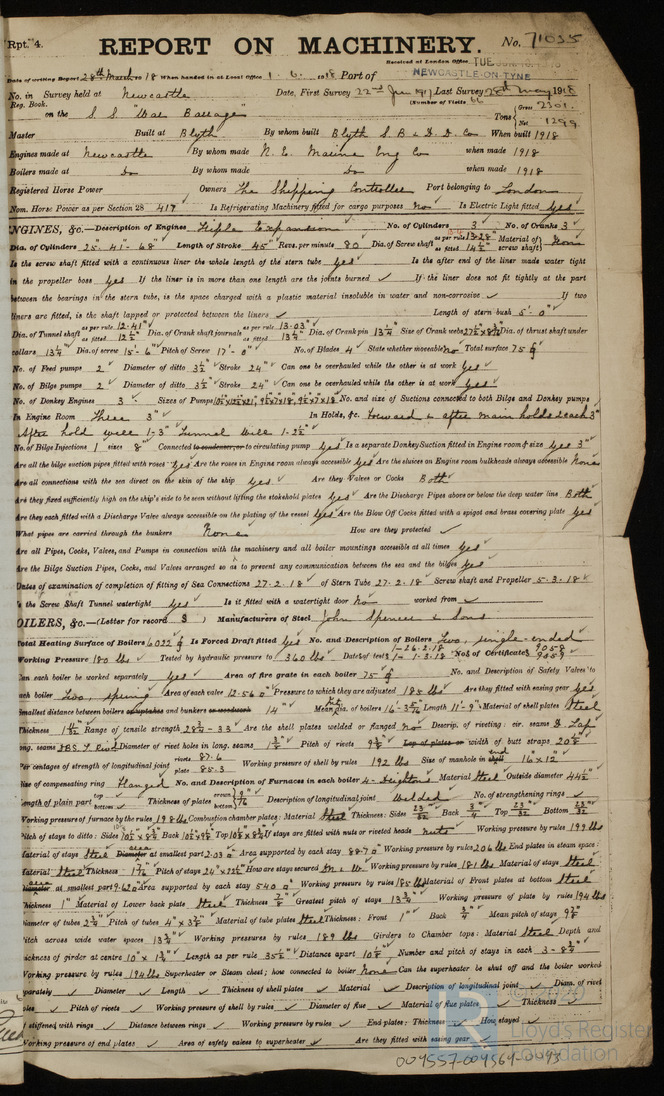 Rpt. 4.
REPORT ON MACHINERY.
No. 71035
Received at London Office TUE
Date of writing Report 28th March 1918 When handed in at Local Office 1. 6. 1918 Port of NEWCASTLE-ON-TYNE
No. in Survey held at Newcastle Date, First Survey 22nd Last Survey 28th May 1918
Reg. Book. (Number of Visits 66
on the S.S. "War Tons Gross 2301. Net 1299
Master Built at Blyth By whom built Blyth S.B. & D.D. Co When built 1918
Engines made at Newcastle By whom made N.E. Marine Eng Co when made 1918
Boilers made at Do By whom made Do when made 1918
Registered Horse Power Owners The Shipping Controller Port belonging to London
Nom. Horse Power as per Section 28 417 Is Refrigerating Machinery fitted for cargo purposes No Is Electric Light fitted Yes
ENGINES, &c.—Description of Engines Triple Expansion No. of Cylinders 3 No. of Cranks 3
Dia. of Cylinders 25. 41. 68 Length of Stroke 45" Revs. per minute 80 Dia. of Screw shaft as per rule 13.28 as fitted 14½" Material of screw shaft Iron
Is the screw shaft fitted with a continuous liner the whole length of the stern tube Yes Is the after end of the liner made water tight
in the propeller boss Yes If the liner is in more than one length are the joints burned ✓ If the liner does not fit tightly at the part
between the bearings in the stern tube, is the space charged with a plastic material insoluble in water and non-corrosive ✓ If two
liners are fitted, is the shaft lapped or protected between the liners ✓ Length of stern bush 5'. 0"
Dia. of Tunnel shaft as per rule 12.41" as fitted 12½" Dia. of Crank shaft journals as per rule 13.03" as fitted 13¼" Dia. of Crank pin 13¼" Size of Crank webs Dia. of thrust shaft under
collars 13¼" Dia. of screw 15'. 6" Pitch of Screw 17'. 0" No. of Blades 4 State whether moveable No Total surface 75
No. of Feed pumps 2 Diameter of ditto 3½" Stroke 24" Can one be overhauled while the other is at work Yes
No. of Bilge pumps 2 Diameter of ditto 3½" Stroke 24" Can one be overhauled while the other is at work Yes
No. of Donkey Engines 3 Sizes of Pumps No. and size of Suctions connected to both Bilge and Donkey pumps
In Engine Room Three 3" In Holds, &c. Forward & after main holds 2 each 3"
After hold well 1-3" Tunnel Well 1-2½"
No. of Bilge Injections 1 sizes 8" Connected to condenser, or to circulating pump Yes Is a separate Donkey Suction fitted in Engine room & size Yes 3"
Are all the bilge suction pipes fitted with roses Yes Are the roses in Engine room always accessible Yes Are the sluices on Engine room bulkheads always accessible None
Are all connections with the sea direct on the skin of the ship Yes Are they Valves or Cocks Both
Are they fixed sufficiently high on the ship's side to be seen without lifting the stokehold plates Yes Are the Discharge Pipes above or below the deep water line Both
Are they each fitted with a Discharge Valve always accessible on the plating of the vessel Yes Are the Blow Off Cocks fitted with a spigot and brass covering plate Yes
What pipes are carried through the bunkers None How are they protected ✓
Are all Pipes, Cocks, Valves, and Pumps in connection with the machinery and all boiler mountings accessible at all times Yes
Are the Bilge Suction Pipes, Cocks, and Valves arranged so as to prevent any communication between the sea and the bilges Yes
Dates of examination of completion of fitting of Sea Connections 27.2.18 of Stern Tube 27.2.18 Screw shaft and Propeller 5.3.18
Is the Screw Shaft Tunnel watertight Yes Is it fitted with a watertight door No worked from ✓
BOILERS, &c.—(Letter for record S) Manufacturers of Steel John Spencer & Sons
Total Heating Surface of Boilers 6022 Is Forced Draft fitted Yes No. and Description of Boilers Two, single-ended
Working Pressure 180 lbs Tested by hydraulic pressure to 360 lbs Date of test 1-26.2.18 1-1.3.18 No. of Certificate 9058 9059
Can each boiler be worked separately Yes Area of fire grate in each boiler 75 No. and Description of Safety Valves to
each boiler Two, spring Area of each valve 12.56 Pressure to which they are adjusted 185 lbs Are they fitted with easing gear Yes
Smallest distance between boilers or uptakes and bunkers or woodwork 14" Mean dia. of boilers Length 11'-9" Material of shell plates Steel
Thickness Range of tensile strength 28¾-33 Are the shell plates welded or flanged No Descrip. of riveting: cir. seams D. Lap
long. seams D.B.S. Diameter of rivet holes in long. seams Pitch of rivets Lap of plates or width of butt straps
Per centages of strength of longitudinal joint rivets 87.6 plate 85.3 Working pressure of shell by rules 192 lbs Size of manhole in end 16" x 12"
Size of compensating ring Flanged No. and Description of Furnaces in each boiler 4-Deightons Material Steel Outside diameter 44½"
Length of plain part top bottom Thickness of plates crown bottom 9/16 Description of longitudinal joint Welded No. of strengthening rings ✓
Working pressure of furnace by the rules 198 lbs Combustion chamber plates: Material Steel Thickness: Sides 23/32 Back ¾ Top 23/32 Bottom 23/32
Pitch of stays to ditto: Sides Back Top If stays are fitted with nuts or riveted heads Nuts Working pressure by rules 199 lbs
Material of stays Steel area at smallest part 2.03 Area supported by each stay 88.70 Working pressure by rules 206 lbs End plates in steam space:
Material Steel Thickness Pitch of stays How are stays secured Working pressure by rules 181 lbs Material of stays Steel
area at smallest part Area supported by each stay 540 Working pressure by rules 185 lbs Material of Front plates at bottom Steel
Thickness 1" Material of Lower back plate Steel Thickness 7/8 Greatest pitch of stays 13¼" Working pressure of plate by rules 194 lbs
Diameter of tubes Pitch of tubes Material of tube plates Steel Thickness: Front 1" Back ¾" Mean pitch of stays
Pitch across wide water spaces 13¼" Working pressures by rules 189 lbs Girders to Chamber tops: Material Steel Depth and
thickness of girder at centre Length as per rule 35½" Distance apart Number and pitch of stays in each
Working pressure by rules 194 lbs Superheater or Steam chest; how connected to boiler None Can the superheater be shut off and the boiler worked
separately ✓ Diameter ✓ Length ✓ Thickness of shell plates ✓ Material ✓ Description of longitudinal joint ✓ Diam. of rivet
holes ✓ Pitch of rivets ✓ Working pressure of shell by rules ✓ Diameter of flue ✓ Material of flue plates ✓ Thickness
If stiffened with rings ✓ Distance between rings ✓ Working pressure by rules ✓ End plates: Thickness ✓ How stayed ✓
Working pressure of end plates ✓ Area of safety valves to superheater ✓ Are they fitted with easing gear ✓
© 2020
Lloyd's Register
Foundation
004557-004564-0093